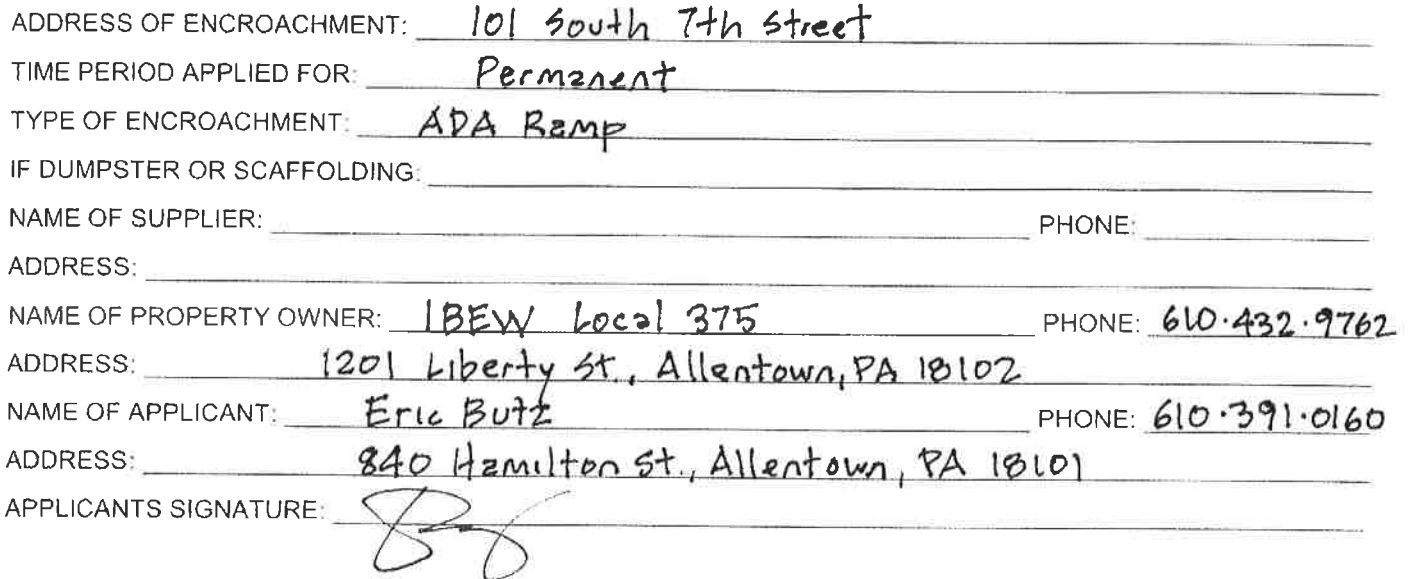 ADDRESS OF ENCROACHMENT: 101 South 7th Street
TIME PERIOD APPLIED FOR: Permanent
TYPE OF ENCROACHMENT: ADA Ramp
IF DUMPSTER OR SCAFFOLDING:
NAME OF SUPPLIER: PHONE:
ADDRESS:
NAME OF PROPERTY OWNER: IBEW Local 375 PHONE: 610.432.9762
ADDRESS: 1201 Liberty St., Allentown, PA 18102
NAME OF APPLICANT: Eric Butz PHONE: 610.391.0160
ADDRESS: 840 Hamilton St., Allentown, PA 18101
APPLICANTS SIGNATURE: